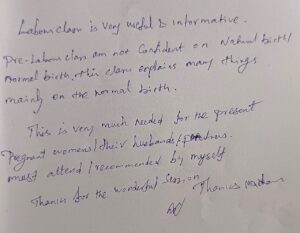 Labour class is very useful & informative.
Pre-Labour class am not Confident on Natural birth/
normal birth. this class explains many things
mainly on the normal birth.
This is very much needed for the present
Pregnant womens/their husbands/
must attend/recommended by myself
Thanks for the wonderful Session
Thanks